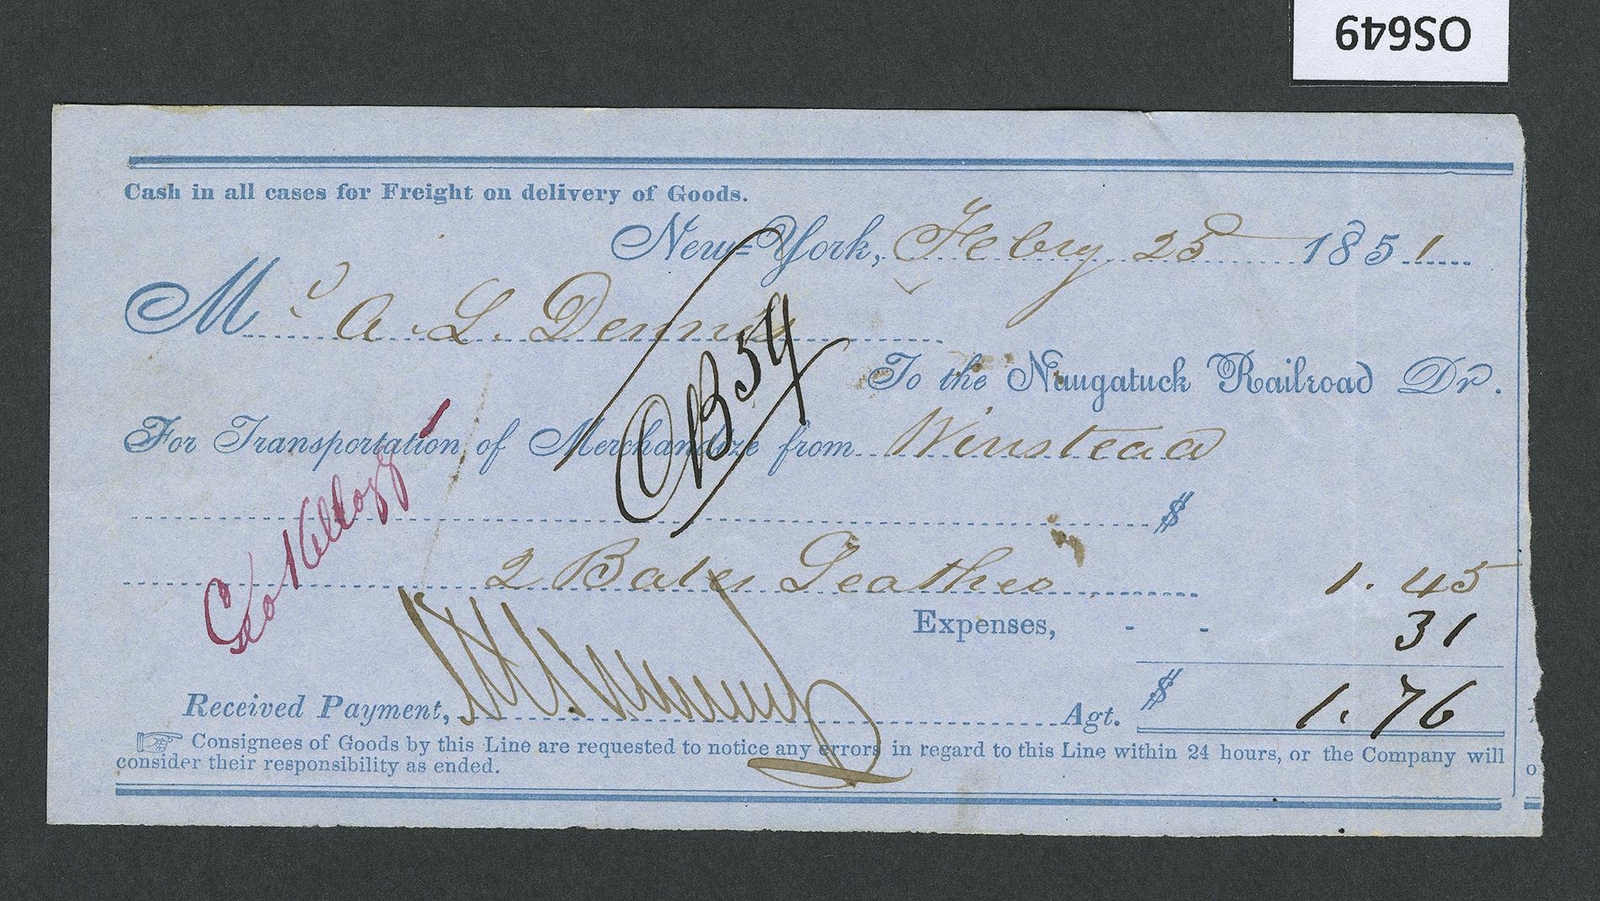 OS649
Cash in all cases for Freight on delivery of Goods.
New-York, Feby 25 1851
Mr A. L. Dennis
To the Naugatuck Railroad Dr.
For Transportation of Merchandize from Winstead
$
2 Bales Leather 1.45
Expenses, - - 31
Received Payment, Agt. $ 1.76
☞ Consignees of Goods by this Line are requested to notice any errors in regard to this Line within 24 hours, or the Company will
consider their responsibility as ended.
Geo Kellogg
OB 59